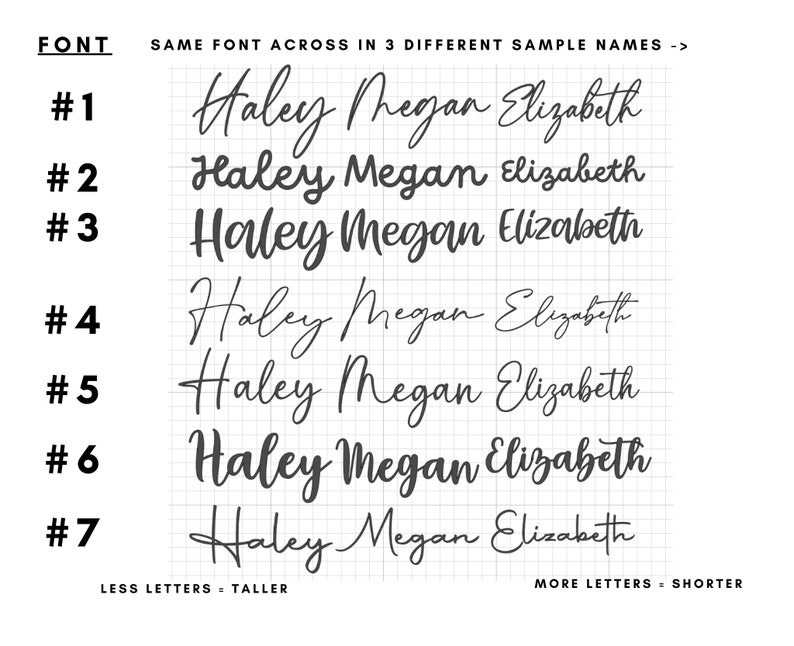 FONT SAME FONT ACROSS IN 3 DIFFERENT SAMPLE NAMES ->
#1 Haley Megan Elizabeth
#2 Haley Megan Elizabeth
#3 Haley Megan Elizabeth
#4 Haley Megan Elizabeth
#5 Haley Megan Elizabeth
#6 Haley Megan Elizabeth
#7 Haley Megan Elizabeth
LESS LETTERS = TALLER MORE LETTERS = SHORTER